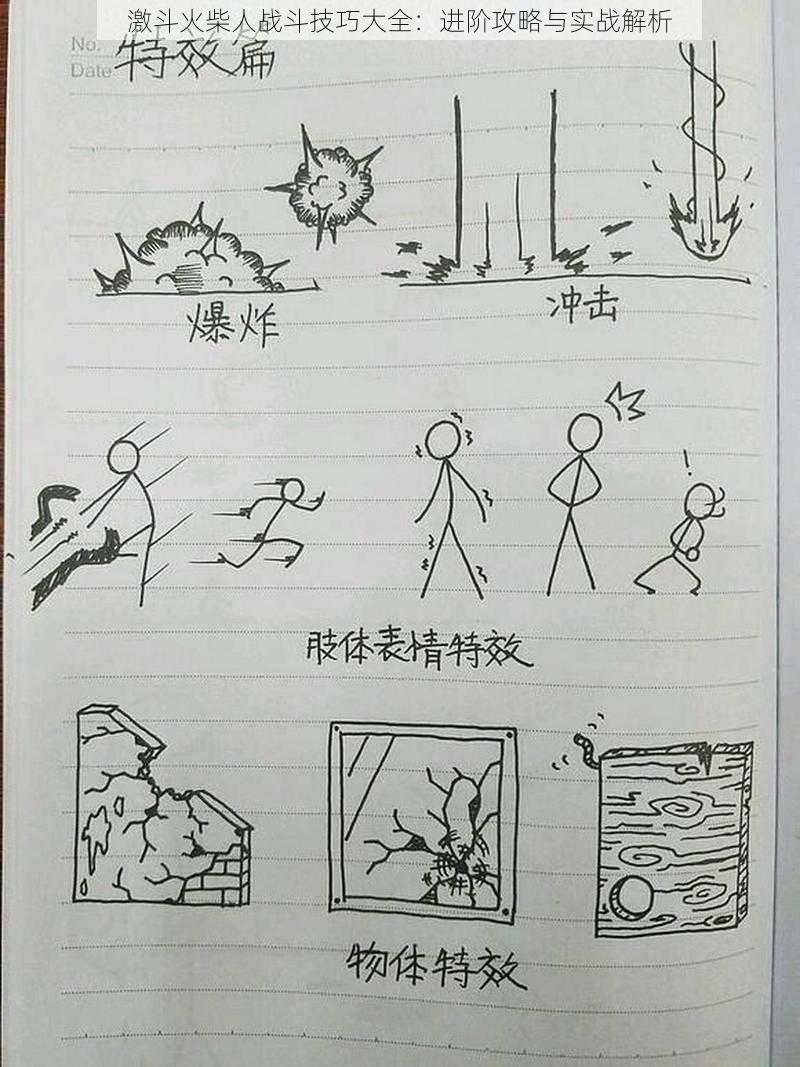 激斗火柴人战斗技巧大全：进阶攻略与实战解析
No.
Date
特效篇
爆炸
冲击
肢体表情特效
物体特效